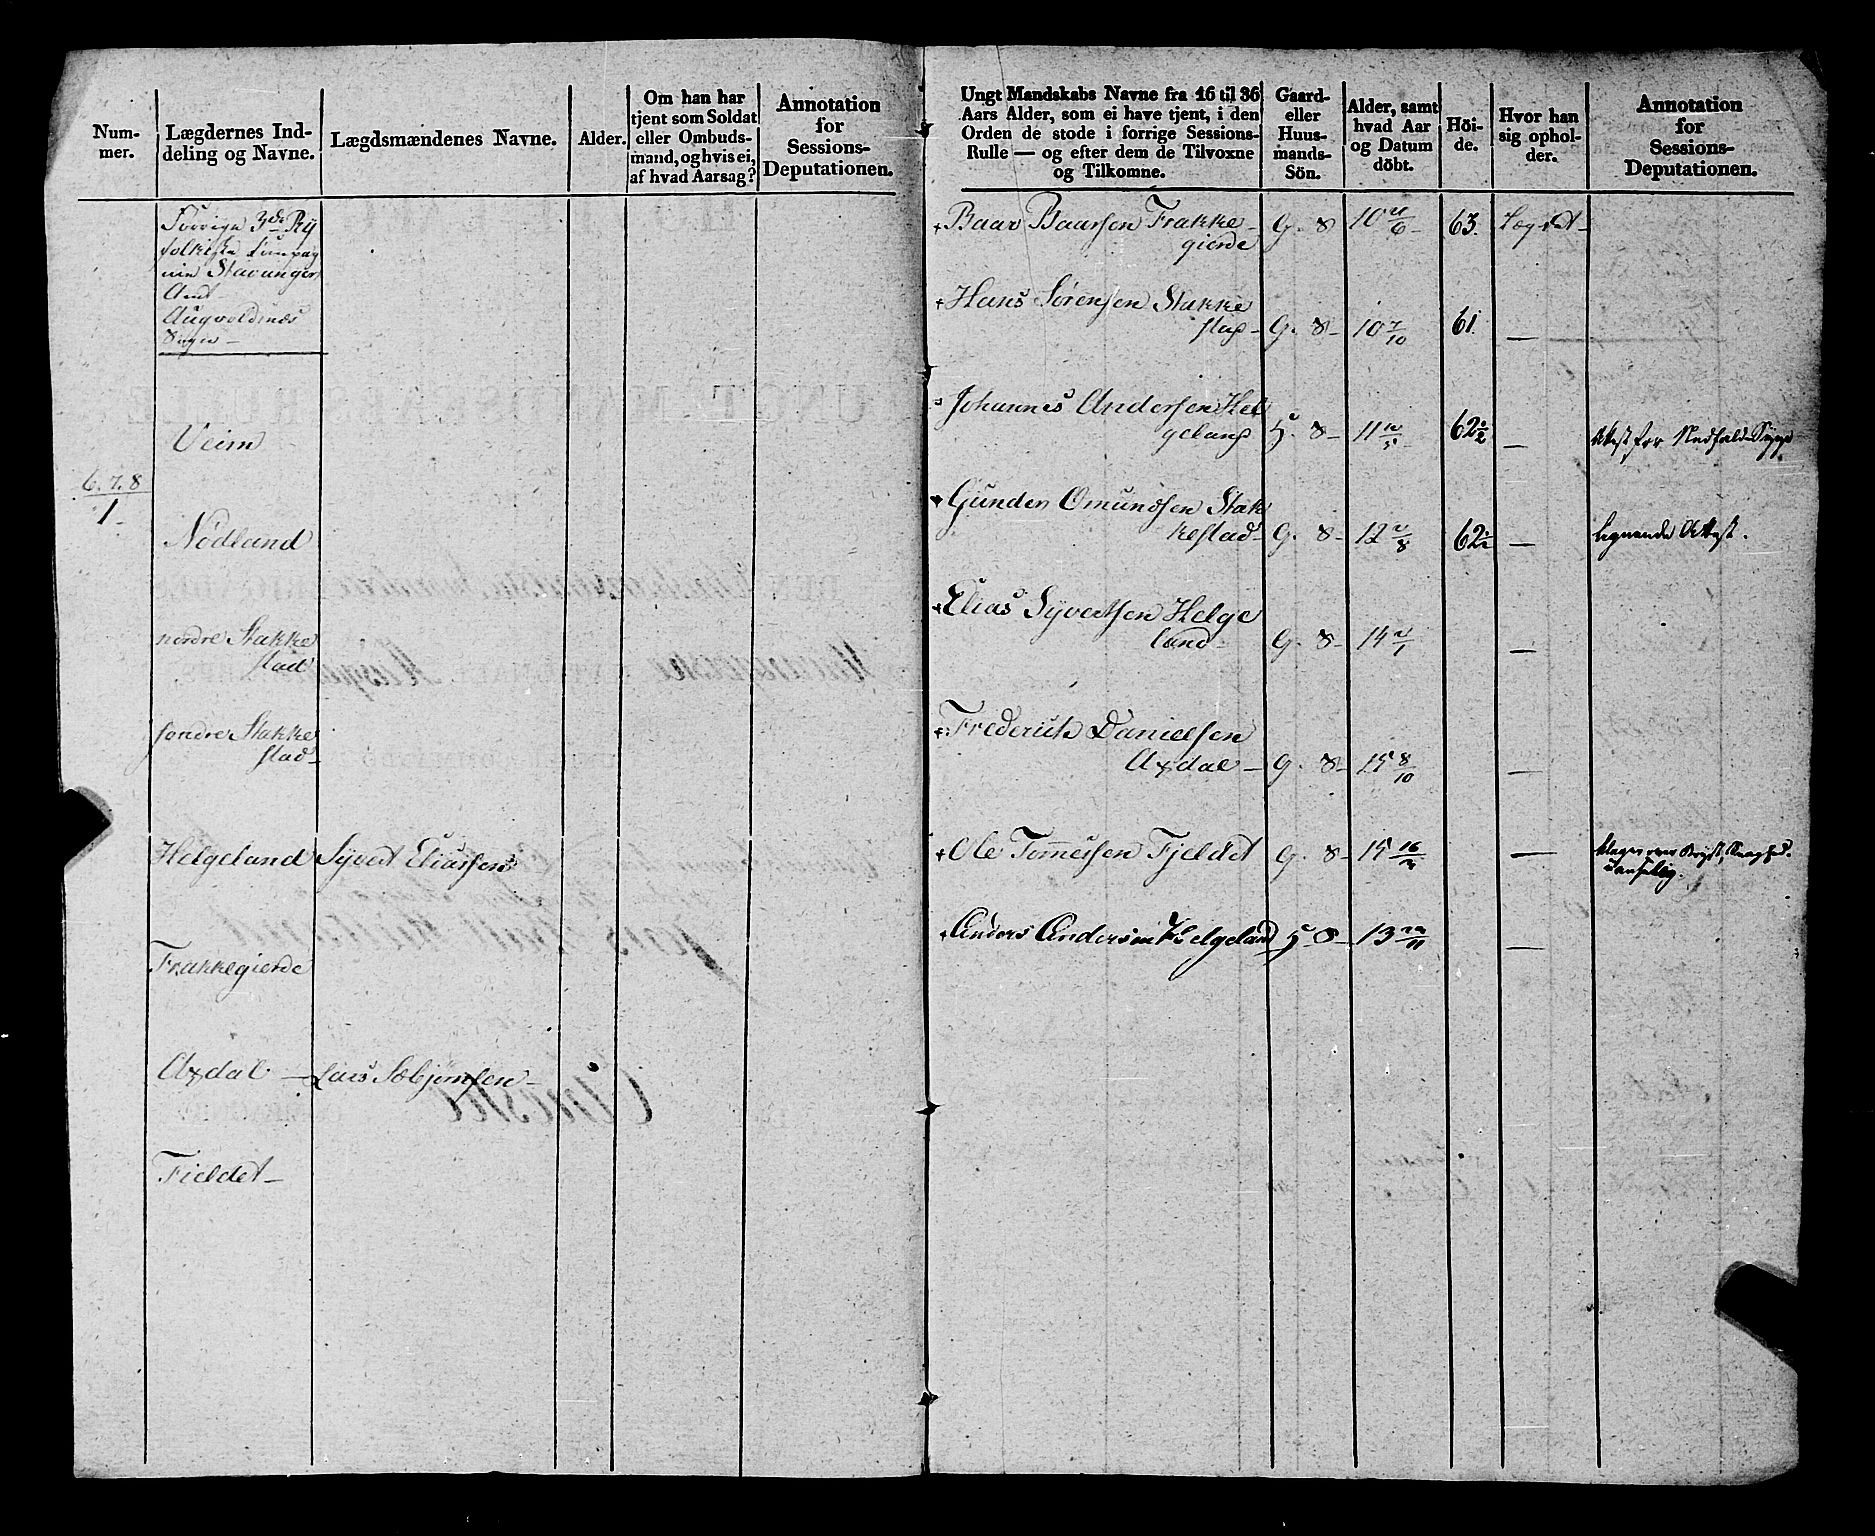 Num-
mer.
Lægdernes Ind-
deling og Navne.
Lægdsmændenes Navne.
Alder.
Om han har
tjent som Soldat
eller Ombuds-
mand, og hvis ei,
af hvad Aarsag?
Annotation
for
Sessions-
Deputationen.
Forrige 3de Ry
folkiske Compag
nie Stavanger
Amt
Augvoldnæs
Sogn
Veim
6. 7. 8
1
Nodland
nordre Stakke
stad
søndre Stakke
stad
Helgeland Syvert Eliassen
Frakkegierde
Axdal Lars
Fieldet
Ungt Mandskabs Navne fra 16 til 36
Aars Alder, som ei have tjent, i den
Orden de stode i forrige Sessions-
Rulle — og efter dem de Tilvoxne
og Tilkomne.
Gaard-
eller
Huus-
mands-
Sön.
Alder, samt
hvad Aar
og Datum
döbt.
Höi-
de.
Hvor han
sig ophol-
der.
Annotation
for
Sessions-
Deputationen.
Baar Baarsen Frakke
gierde G. 8 10 63. Lægdet
Hans Sørensen Stakke
stad G. 8 10 7/10 61. —
Johannes Andersen Hel
geland 8 11 62 1/2 — Attest for
Gunder Omundsen Stak
kestad G. 8 12 62 1/2 — lignende Attest.
Elias Syvertsen Helge
land G. 8 14 —
Frederich Danielsen
Axdal G. 8 15 8/10 —
Ole Tønnessen Fjeldet G. 8 15 — Klager over Bryst
Anders Andersen Helgeland 8 13 —